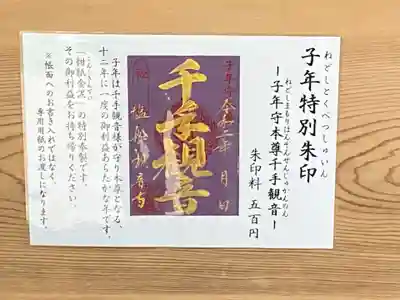 ねどしとくべつしゅいん
子年特別朱印
ねどしまもりほんぞんせんじゅかんのん
ー子年守本尊千手観音ー
朱印料 五百円
子年守
令和二年 月 日
千手観音
塩船観音寺
子年は千手観音様が守り本尊となる、
十二年に一度の御利益あらたかな年です。
こんしきんでい
「紺紙金泥」の特別奉製です。
その御利益をお持ち帰りください。
※帳面へのお書き入れではなく
専用用紙のお渡しになります。